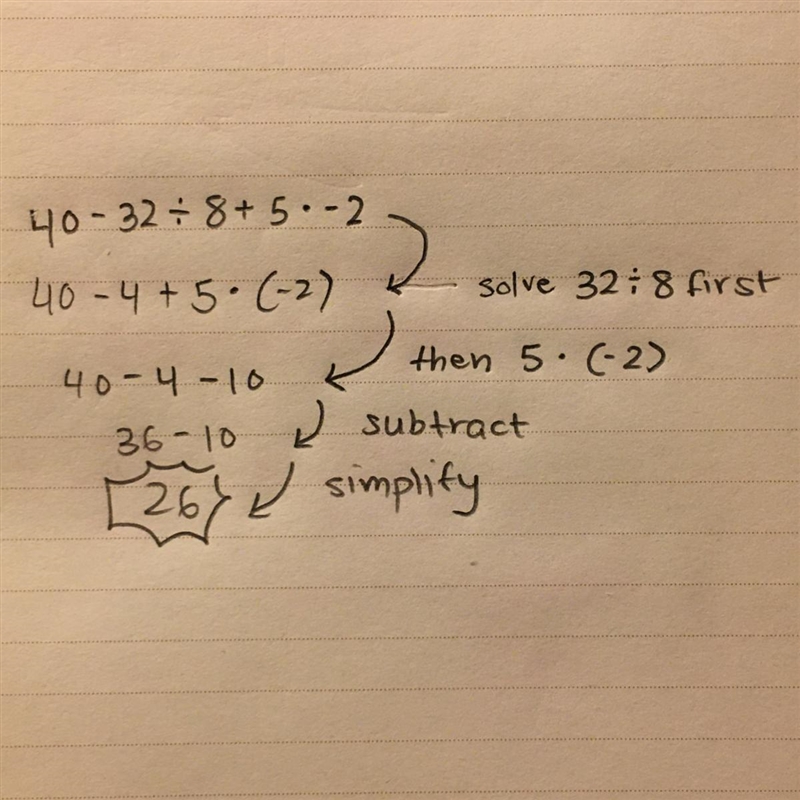 40 - 32 ÷ 8 + 5 · -2
40 - 4 + 5 · (-2) solve 32 ÷ 8 first
then 5 · (-2)
40 - 4 - 10
36 - 10 subtract
26 simplify